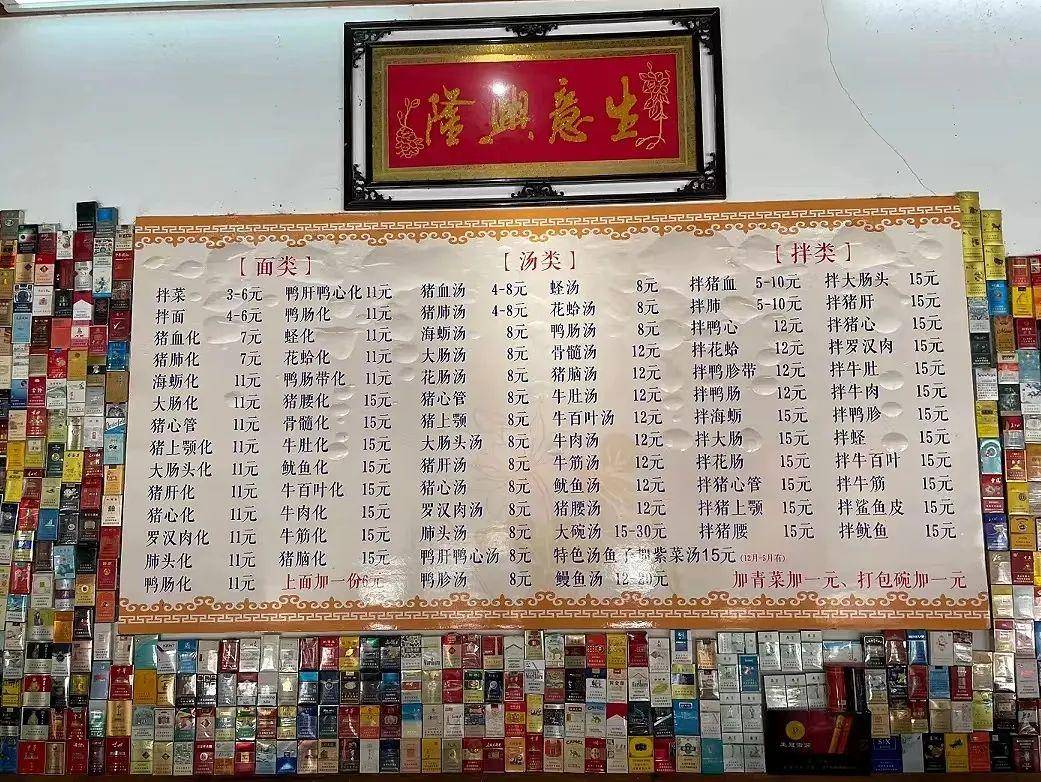 生意興隆
[面类]
拌菜 3-6元
拌面 4-6元
猪血化 7元
猪肺化 7元
海蛎化 11元
大肠化 11元
猪心管 11元
猪上颚化 11元
大肠头化 11元
猪肝化 11元
猪心化 11元
罗汉肉化 11元
肺头化 11元
鸭肠化 11元
鸭肝鸭心化 11元
鸭肠化 11元
蛏化 11元
花蛤化 11元
鸭肠带化 11元
猪腰化 15元
骨髓化 15元
牛肚化 15元
鱿鱼化 15元
牛百叶化 15元
牛肉化 15元
牛筋化 15元
猪脑化 15元
上面加一份6元
[汤类]
猪血汤 4-8元
猪肺汤 4-8元
海蛎汤 8元
大肠汤 8元
花肠汤 8元
猪心管 8元
猪上颚 8元
大肠头汤 8元
猪肝汤 8元
猪心汤 8元
罗汉肉汤 8元
肺头汤 8元
鸭肝鸭心汤 8元
鸭胗汤 8元
蛏汤 8元
花蛤汤 8元
鸭肠汤 8元
骨髓汤 12元
猪脑汤 12元
牛肚汤 12元
牛百叶汤 12元
牛肉汤 12元
牛筋汤 12元
鱿鱼汤 12元
猪腰汤 12元
大碗汤 15-30元
特色汤鱼子加紫菜汤15元(12月-5月有)
鳗鱼汤 12-20元
[拌类]
拌猪血 5-10元
拌肺 5-10元
拌鸭心 12元
拌花蛤 12元
拌鸭胗带 12元
拌鸭肠 12元
拌海蛎 15元
拌大肠 15元
拌花肠 15元
拌猪心管 15元
拌猪上颚 15元
拌猪腰 15元
拌大肠头 15元
拌猪肝 15元
拌猪心 15元
拌罗汉肉 15元
拌牛肚 15元
拌牛肉 15元
拌鸭胗 15元
拌蛏 15元
拌牛百叶 15元
拌牛筋 15元
拌鲨鱼皮 15元
拌鱿鱼 15元
加青菜加一元、打包碗加一元